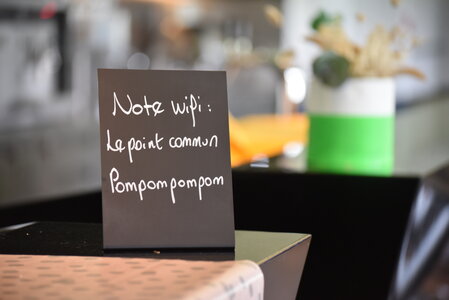 Note wifi :
Le point commun
Pompompompom